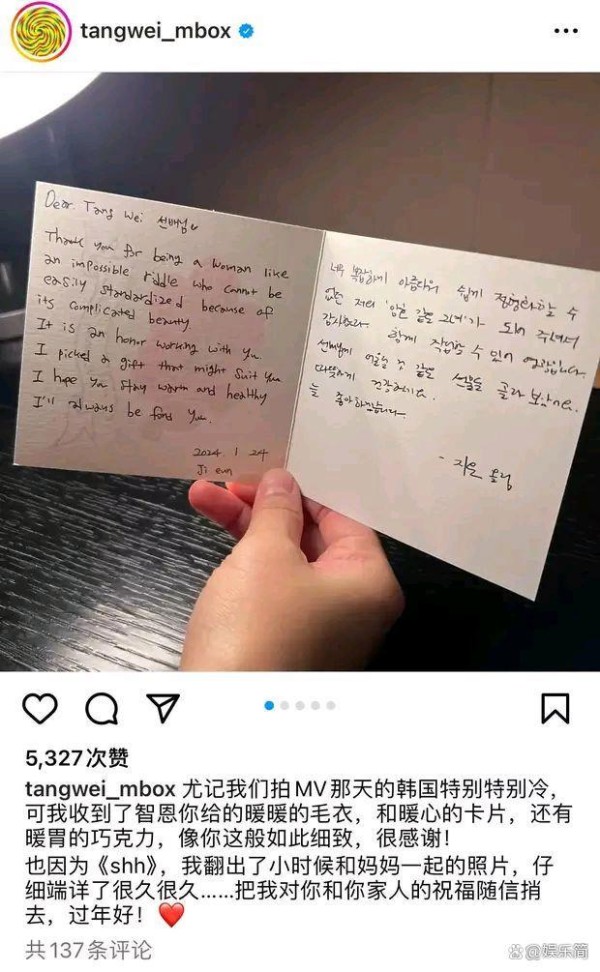 tangwei_mbox
Dear. Tang Wei 선배님
Thank you for being a woman like
an impossible riddle who cannot be
easily standardized because of
its complicated beauty.
It is an honor working with you
I picked a gift that might suit you
I hope you stay warm and healthy
I'll always be fond you.
2024 1 24
Ji eun
너무 복잡하게 아름다워 쉽게 정형화할 수
없는 저의 '암호 같은 그녀'가 되어 주셔서
감사해요. 함께 작업할 수 있어 영광입니다.
선배님께 어울릴 것 같은 선물을 골라 보았어요.
따뜻하게 건강하세요.
늘 좋아하겠습니다
- 지은 올림
5,327次赞
tangwei_mbox 尤记我们拍MV那天的韩国特别特别冷，
可我收到了智恩你给的暖暖的毛衣，和暖心的卡片，还有
暖胃的巧克力，像你这般如此细致，很感谢！
也因为《shh》，我翻出了小时候和妈妈一起的照片，仔
细端详了很久很久......把我对你和你家人的祝福随信捎
去，过年好！❤️
共137条评论
@娱乐简